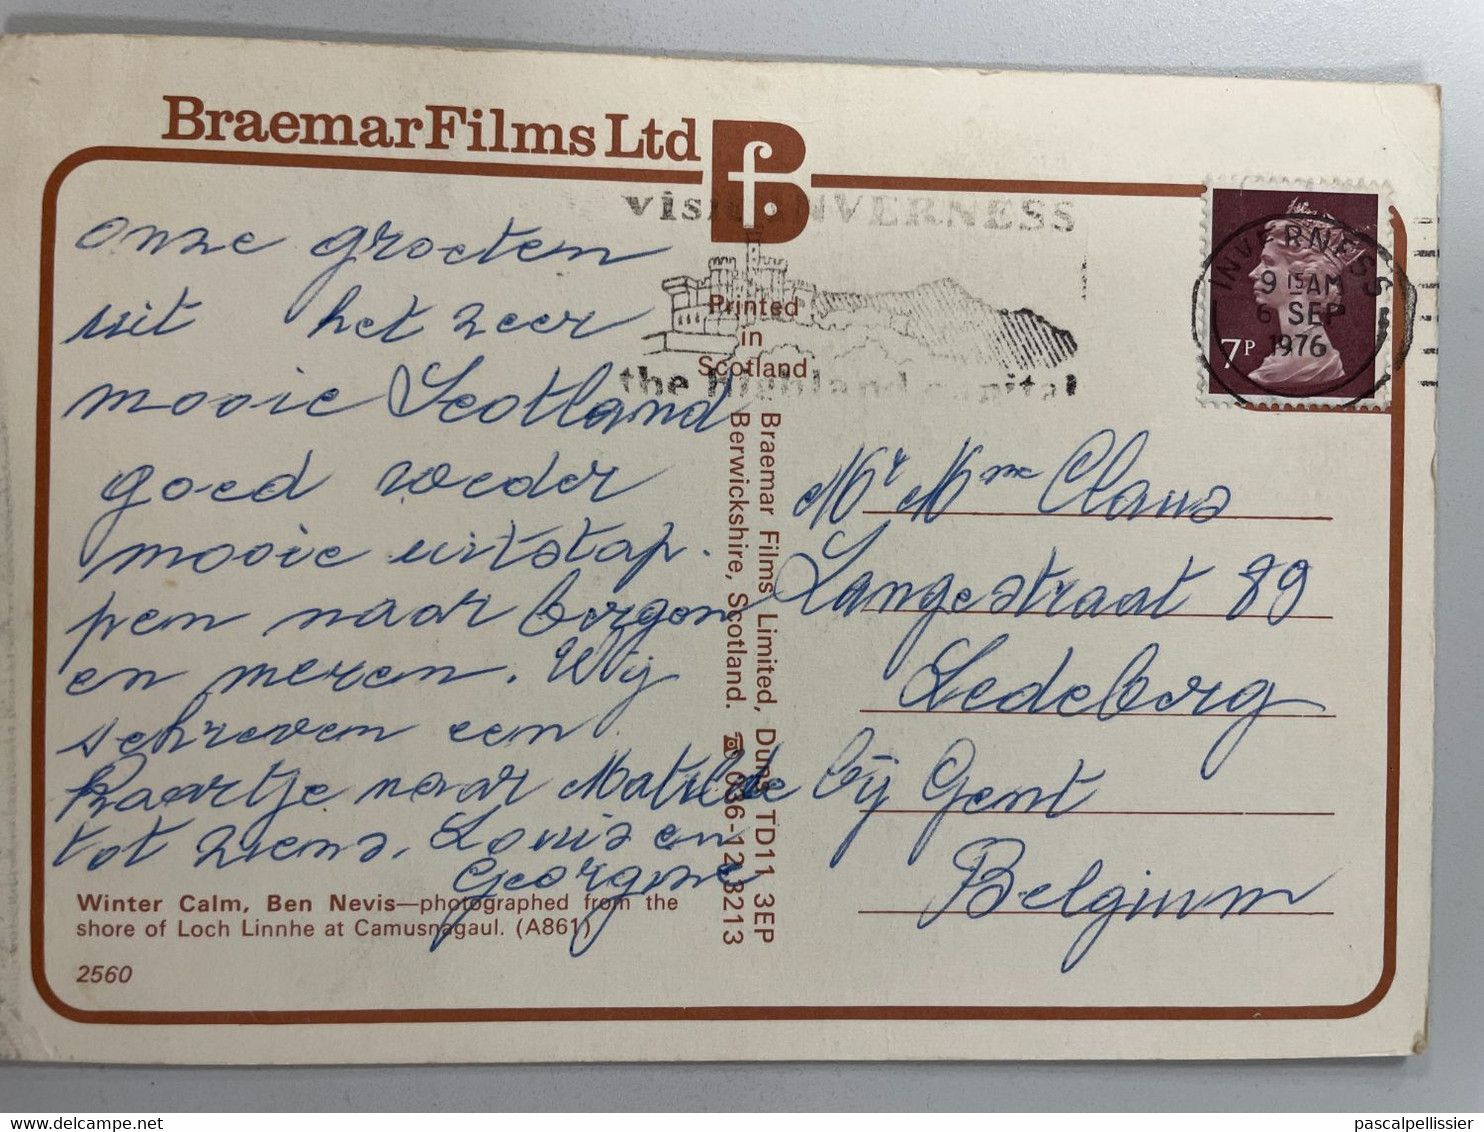 Braemar Films Ltd
Bf.
visit INVERNESS
the highland capital
INVERNESS
9 15 AM
6 SEP
1976
7P
Printed
in
Scotland
Braemar Films Limited, Duns, TD11 3EP
Berwickshire, Scotland. ☎ 036-12 3213
onze groeten
uit het zeer
mooie Scotland
goed weder
mooie uitstap.
pen naar bergen
en meren. Wij
schreven een
kaartje naar Matilde
tot ziens. Louis en
Georgine
Mr Mme Claus
Langestraat 89
Ledeberg
bij Gent
Belgium
Winter Calm, Ben Nevis—photographed from the
shore of Loch Linnhe at Camusnagaul. (A861)
2560
delcampe.net
pascalpellissier